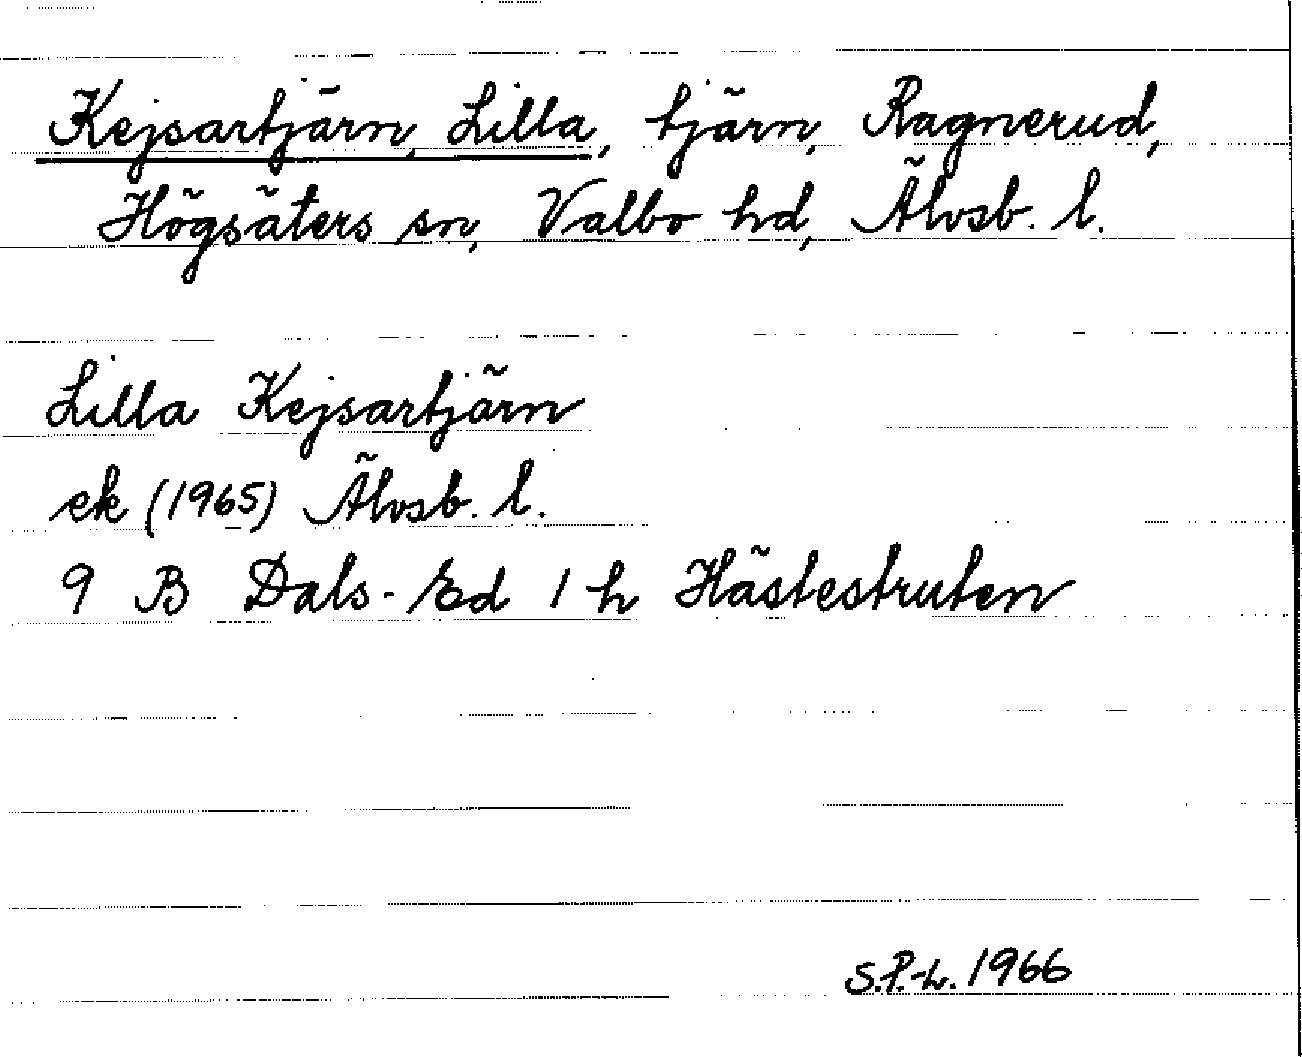 Kejsartjärn, Lilla, tjärn, Ragnerud,
Högsäters sn, Valbo hd, Älvsb. l.
Lilla Kejsartjärn
ek (1965) Älvsb. l.
9 B Dals-Ed 1 h Hästestruten
S.P.-L. 1966